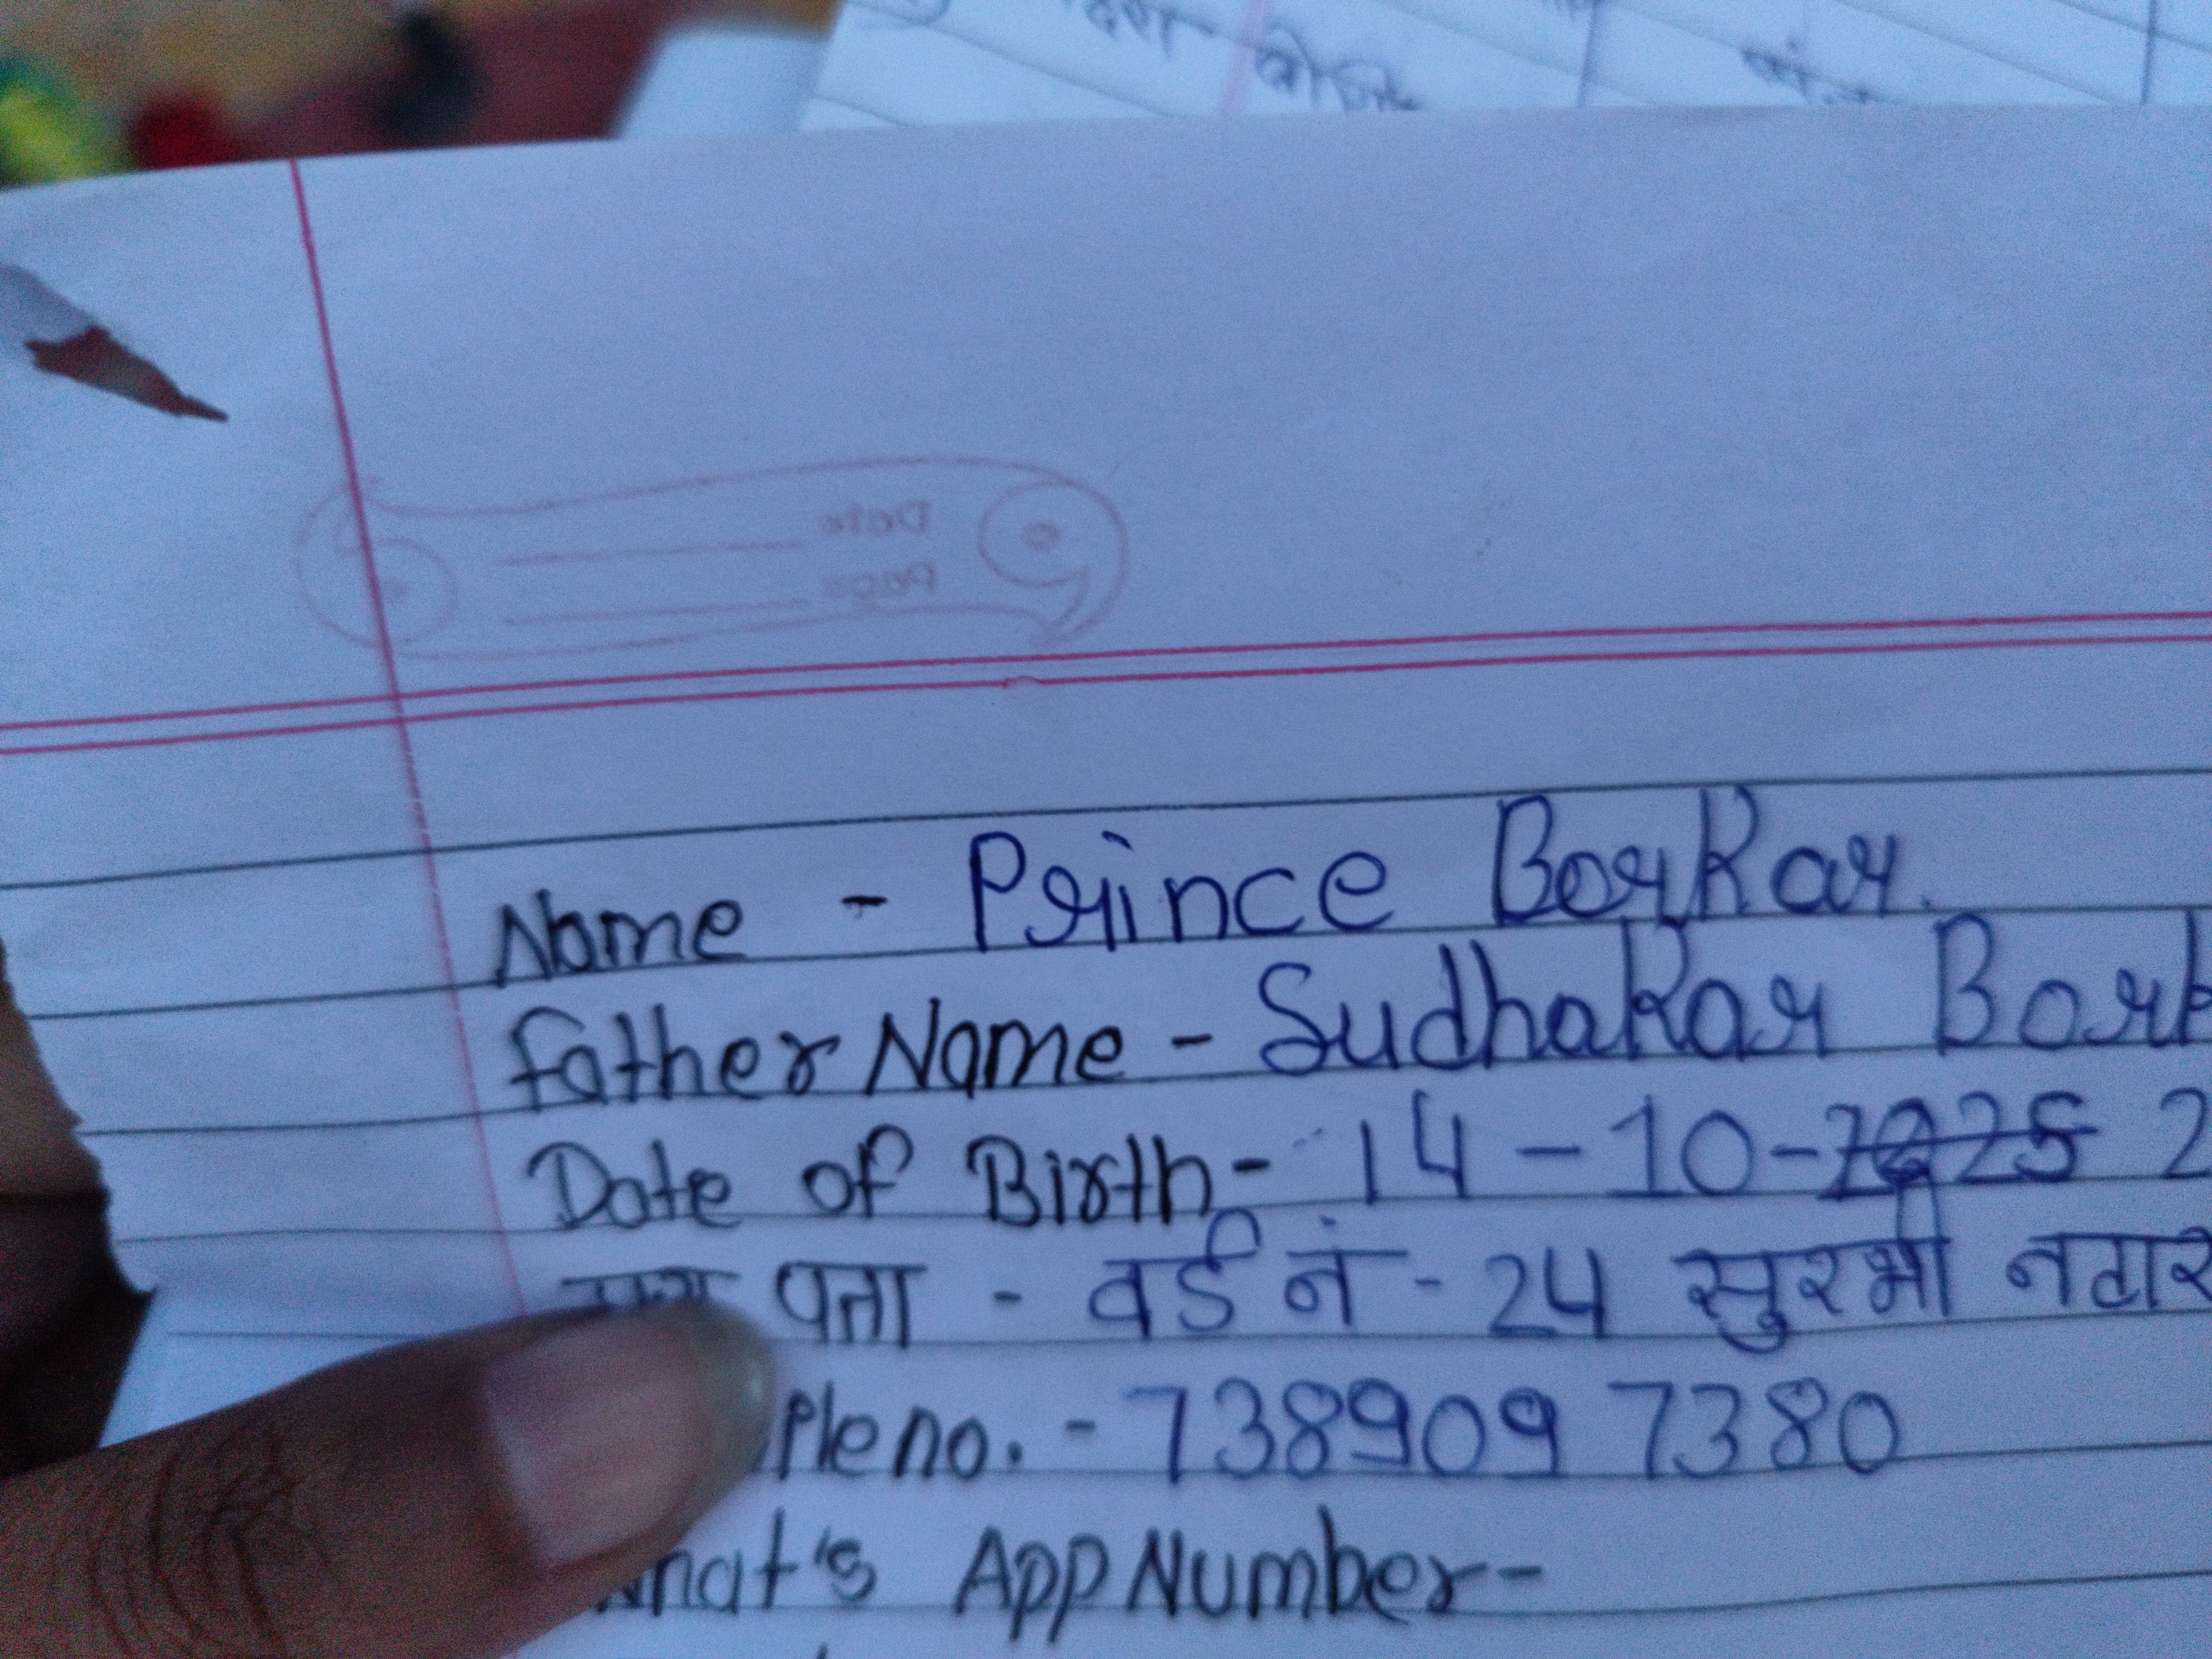 Date
Page
Name - Prince Borkar.
Father Name - Sudhakar
Date of Birth - 14 - 10 -
पता - वर्ड नं - 24 सुरभी नगर
no. - 738909 7380
App Number -